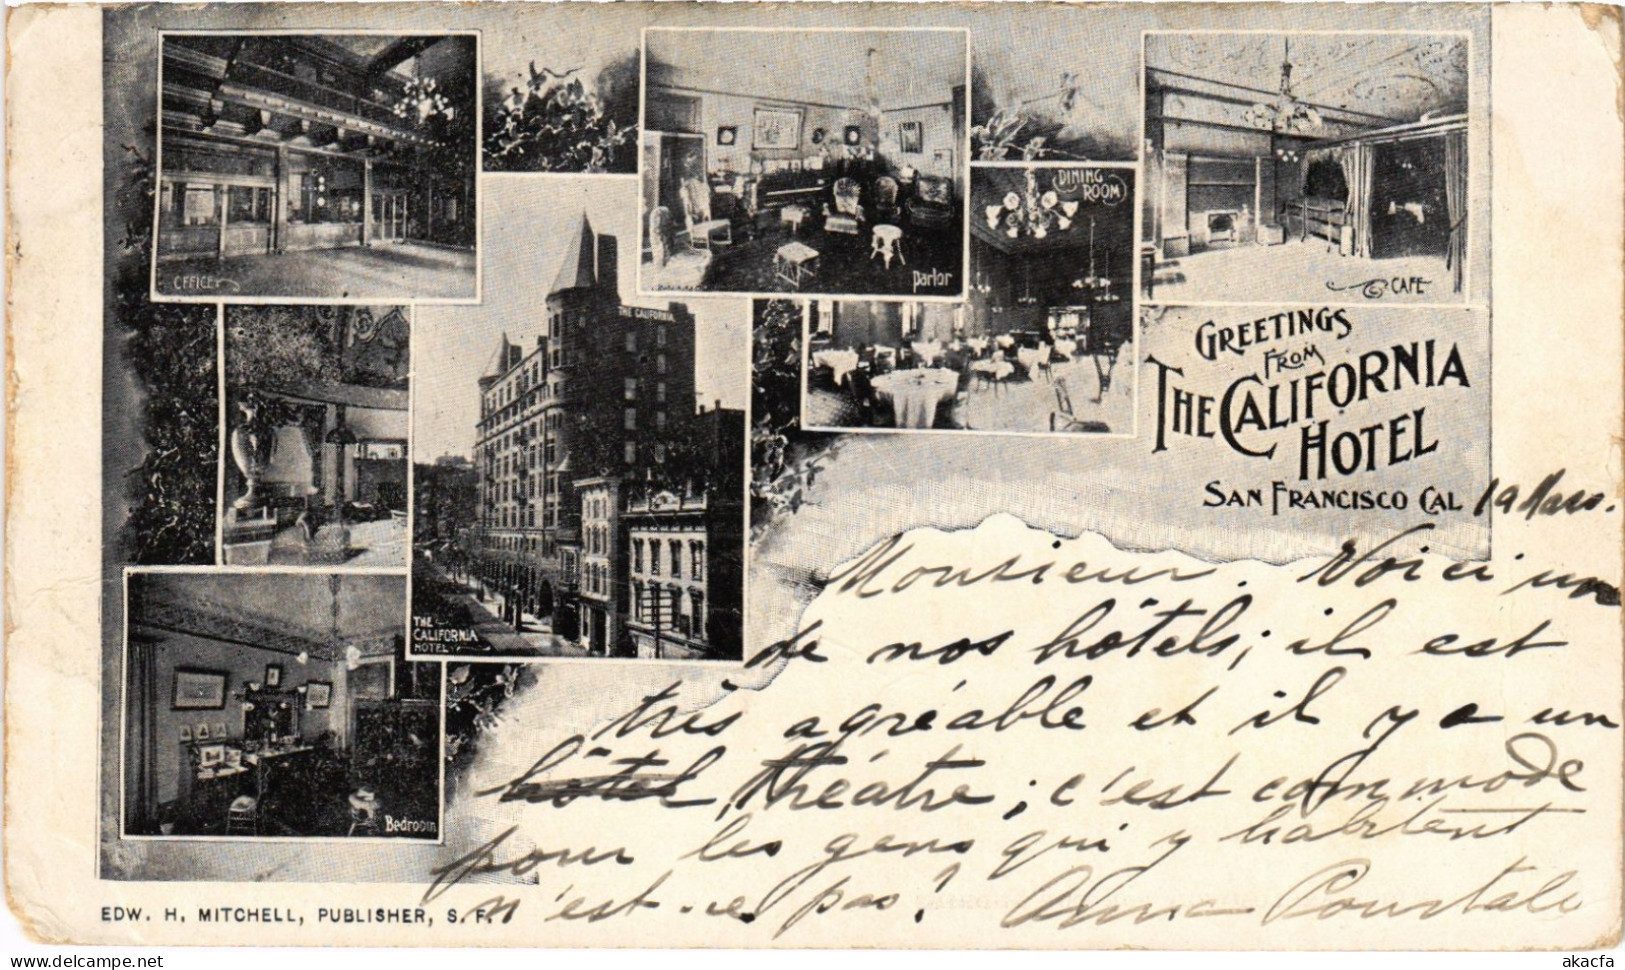 OFFICE
Parlor
DINING
ROOM
CAFE
THE CALIFORNIA
THE
CALIFORNIA
HOTEL
Bedroom
GREETINGS
FROM
THE CALIFORNIA
HOTEL
SAN FRANCISCO CAL
19 Mars.
Monsieur. Voici un
de nos hôtels; il est
très agréable et il y a un
hôtel théâtre; c'est commode
pour les gens qui y habitent
n'est-ce pas! Anna
EDW. H. MITCHELL, PUBLISHER, S. F.
akacfa